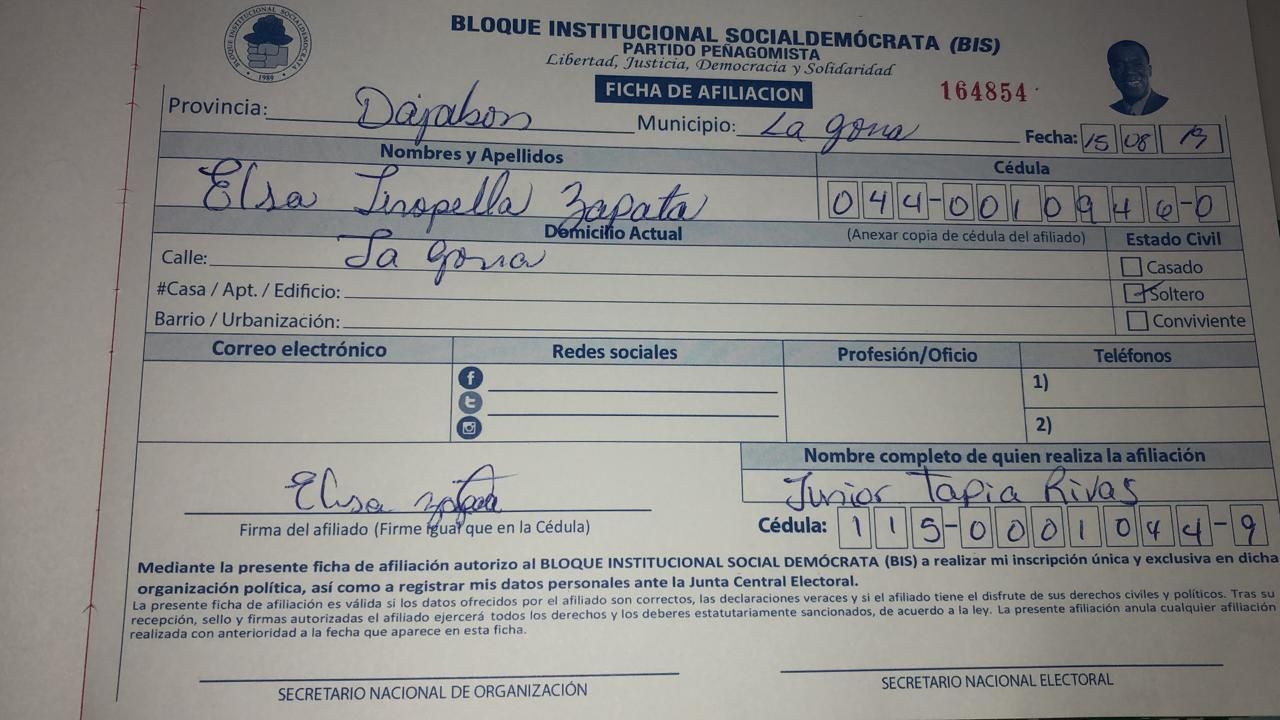 BLOQUE INSTITUCIONAL SOCIALDEMÓCRATA (BIS)
PARTIDO PEÑAGOMISTA
Libertad, Justicia, Democracia y Solidaridad
BLOQUE INSTITUCIONAL SOCIALDEMOCRATA
• 1989 •
FICHA DE AFILIACION
164854
Provincia: Dajabon Municipio: La gorra Fecha: 15 08 13
Nombres y Apellidos Cédula
Elsa Zapata 044-0010946-0
Domicilio Actual (Anexar copia de cédula del afiliado) Estado Civil
Calle: La gorra
Casado
#Casa / Apt. / Edificio: Soltero
Barrio / Urbanización: Conviviente
Correo electrónico Redes sociales Profesión/Oficio Teléfonos
1)
2)
Nombre completo de quien realiza la afiliación
Elsa Zapata Junior Tapia Rivas
Firma del afiliado (Firme igual que en la Cédula) Cédula: 115-0001044-9
Mediante la presente ficha de afiliación autorizo al BLOQUE INSTITUCIONAL SOCIAL DEMÓCRATA (BIS) a realizar mi inscripción única y exclusiva en dicha
organización política, así como a registrar mis datos personales ante la Junta Central Electoral.
La presente ficha de afiliación es válida si los datos ofrecidos por el afiliado son correctos, las declaraciones veraces y si el afiliado tiene el disfrute de sus derechos civiles y políticos. Tras su
recepción, sello y firmas autorizadas el afiliado ejercerá todos los derechos y los deberes estatutariamente sancionados, de acuerdo a la ley. La presente afiliación anula cualquier afiliación
realizada con anterioridad a la fecha que aparece en esta ficha.
SECRETARIO NACIONAL DE ORGANIZACIÓN SECRETARIO NACIONAL ELECTORAL